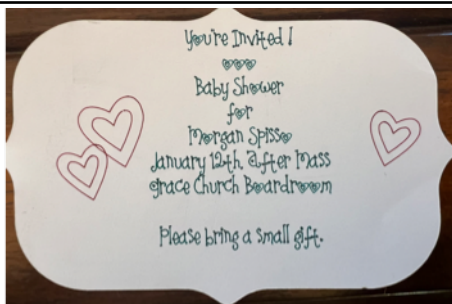 You're Invited!
Baby Shower
for
Morgan Spisso
January 12th, after Mass
Grace Church Boardroom
Please bring a small gift.